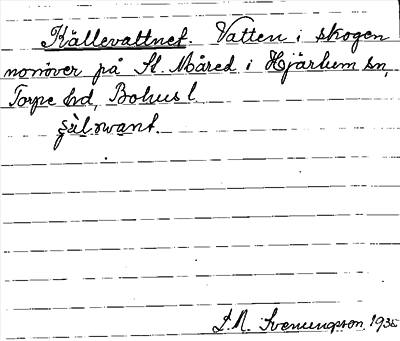 Källevattnet. Vatten i skogen
norröver på St. Måred i Hjärtum sn,
Torpe hd, Bohus l.
S. N. Svenungsson 1935